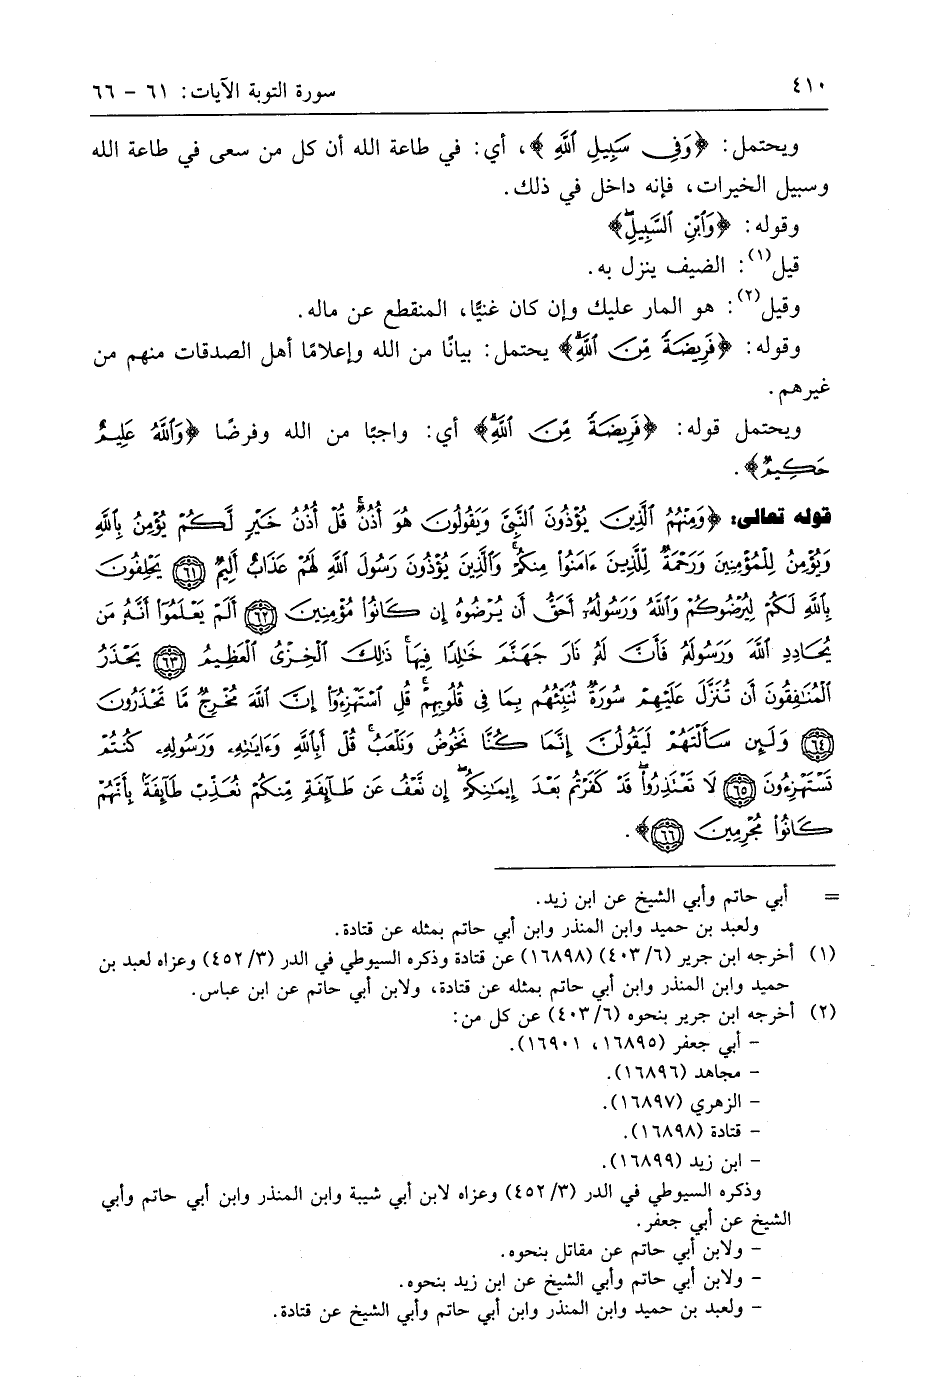 ٤١٠
سورة التوبة الآيات: ٦١ - ٦٦
ويحتمل: ﴿وَفِى سَبِيلِ ٱللَّهِ﴾، أي: في طاعة الله أن كل من سعى في طاعة الله
وسبيل الخيرات، فإنه داخل في ذلك.
وقوله: ﴿وَٱبْنِ ٱلسَّبِيلِۖ﴾
قيل(١): الضيف ينزل به.
وقيل(٢): هو المار عليك وإن كان غنيًّا، المنقطع عن ماله.
وقوله: ﴿فَرِيضَةً مِّنَ ٱللَّهِۗ﴾ يحتمل: بيانًا من الله وإعلامًا أهل الصدقات منهم من
غيرهم.
ويحتمل قوله: ﴿فَرِيضَةً مِّنَ ٱللَّهِۗ﴾ أي: واجبًا من الله وفرضًا ﴿وَٱللَّهُ عَلِيمٌ
حَكِيمٌ﴾.
قوله تعالى: ﴿وَمِنْهُمُ ٱلَّذِينَ يُؤْذُونَ ٱلنَّبِىَّ وَيَقُولُونَ هُوَ أُذُنٌۚ قُلْ أُذُنُ خَيْرٍ لَّكُمْ يُؤْمِنُ بِٱللَّهِ
وَيُؤْمِنُ لِلْمُؤْمِنِينَ وَرَحْمَةٌ لِّلَّذِينَ ءَامَنُوا۟ مِنكُمْۚ وَٱلَّذِينَ يُؤْذُونَ رَسُولَ ٱللَّهِ لَهُمْ عَذَابٌ أَلِيمٌ ٦١ يَحْلِفُونَ
بِٱللَّهِ لَكُمْ لِيُرْضُوكُمْ وَٱللَّهُ وَرَسُولُهُۥٓ أَحَقُّ أَن يُرْضُوهُ إِن كَانُوا۟ مُؤْمِنِينَ ٦٢ أَلَمْ يَعْلَمُوٓا۟ أَنَّهُۥ مَن
يُحَادِدِ ٱللَّهَ وَرَسُولَهُۥ فَأَنَّ لَهُۥ نَارَ جَهَنَّمَ خَٰلِدًا فِيهَاۚ ذَٰلِكَ ٱلْخِزْىُ ٱلْعَظِيمُ ٦٣ يَحْذَرُ
ٱلْمُنَٰفِقُونَ أَن تُنَزَّلَ عَلَيْهِمْ سُورَةٌ تُنَبِّئُهُم بِمَا فِى قُلُوبِهِمْۚ قُلِ ٱسْتَهْزِءُوٓا۟ إِنَّ ٱللَّهَ مُخْرِجٌ مَّا تَحْذَرُونَ
٦٤ وَلَئِن سَأَلْتَهُمْ لَيَقُولُنَّ إِنَّمَا كُنَّا نَخُوضُ وَنَلْعَبُۚ قُلْ أَبِٱللَّهِ وَءَايَٰتِهِۦ وَرَسُولِهِۦ كُنتُمْ
تَسْتَهْزِءُونَ ٦٥ لَا تَعْتَذِرُوا۟ قَدْ كَفَرْتُم بَعْدَ إِيمَٰنِكُمْۚ إِن نَّعْفُ عَن طَآئِفَةٍ مِّنكُمْ نُعَذِّبْ طَآئِفَةًۢ بِأَنَّهُمْ
كَانُوا۟ مُجْرِمِينَ ٦٦﴾.
= أبي حاتم وأبي الشيخ عن ابن زيد.
ولعبد بن حميد وابن المنذر وابن أبي حاتم بمثله عن قتادة.
(١) أخرجه ابن جرير (٦/ ٤٠٣) (١٦٨٩٨) عن قتادة وذكره السيوطي في الدر (٣/ ٤٥٢) وعزاه لعبد بن
حميد وابن المنذر وابن أبي حاتم بمثله عن قتادة، ولابن أبي حاتم عن ابن عباس.
(٢) أخرجه ابن جرير بنحوه (٦/ ٤٠٣) عن كل من:
- أبي جعفر (١٦٨٩٥، ١٦٩٠١).
- مجاهد (١٦٨٩٦).
- الزهري (١٦٨٩٧).
- قتادة (١٦٨٩٨).
- ابن زيد (١٦٨٩٩).
وذكره السيوطي في الدر (٣/ ٤٥٢) وعزاه لابن أبي شيبة وابن المنذر وابن أبي حاتم وأبي
الشيخ عن أبي جعفر.
- ولابن أبي حاتم عن مقاتل بنحوه.
- ولابن أبي حاتم وأبي الشيخ عن ابن زيد بنحوه.
- ولعبد بن حميد وابن المنذر وابن أبي حاتم وأبي الشيخ عن قتادة.